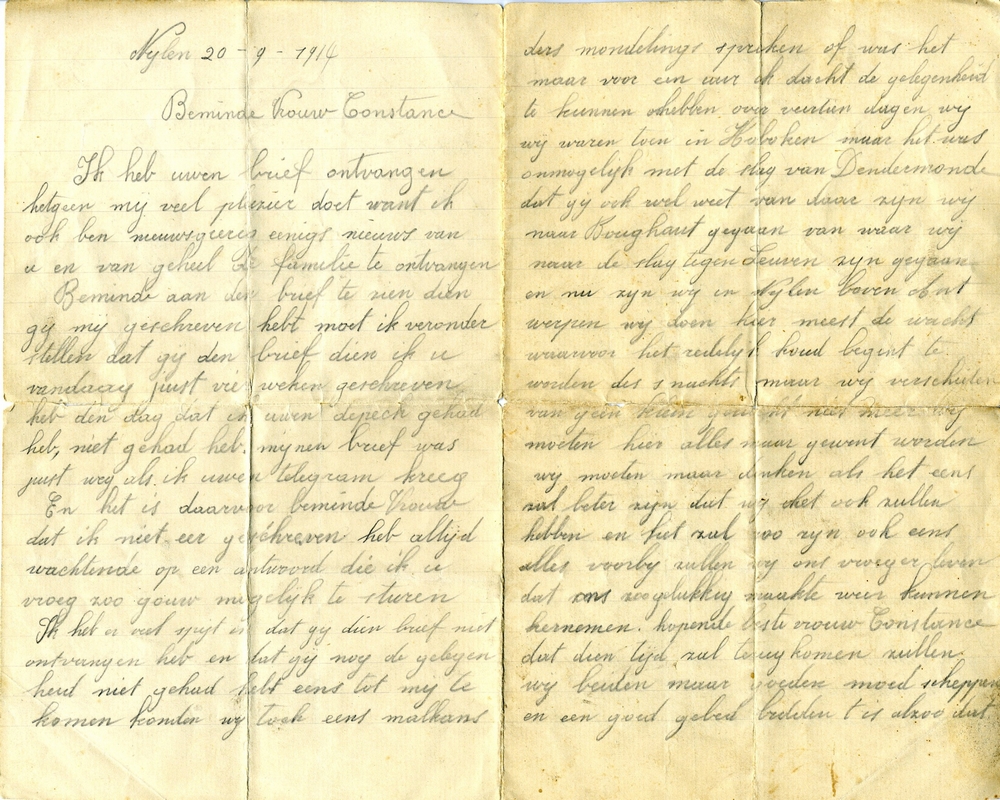 Nylen 20 - 9 - 1914
Beminde Vrouw Constance
Ik heb uwen brief ontvangen
hetgeen my veel plezier doet want ik
ook ben nieuwsgierig eenigs nieuws van
u en van geheel de familie te ontvangen
Beminde aan den brief te zien dien
gy my geschreven hebt moet ik veronder
stellen dat gy den brief dien ik u
vandaag juist vier weken geschreven
heb den dag dat ik uwen depech gehad
heb, niet gehad heb. mynen brief was
just weg als ik uwen telegram kreeg
En het is daarvoor beminde Vrouw
dat ik niet eer geschreven heb altyd
wachtende op een antwoord die ik u
vroeg zoo gouw mogelyk te sturen
Ik heb er veel spyt in dat gy dien brief niet
ontvangen heb en dat gy nog de gelegen
heid niet gehad hebt eens tot my te
komen konden wy toch eens malkans
ders mondelings spreken of was het
maar voor een uur ik dacht de gelegenheid
te kunnen hebben over veertien dagen wy
wy waren toen in Hoboken maar het was
onmogelyk met de slag van Dendermonde
dat gy ook wel weet van daar zyn wy
naar Boughout gegaan van waar wy
naar de slag tegen Leuven zyn gegaan
en nu zyn wy in Nylen boven Ant
werpen wy doen hier meest de wacht
waarvoor het redelyk koud begint te
worden des s nachts maar wy verschieten
van geen klein niet meer wy
moeten hier alles maar gewent worden
wy moeten maar denken als het eens
zal beter zyn dat wy het ook zullen
hebben en het zal zoo zyn ook eens
alles voorby zullen wy ons vroeger leven
dat ons zoo gelukkig maakte weer kunnen
hernemen. hopende beste vrouw Constance
dat dien tyd zal terug komen zullen
wy beiden maar goeden moed scheppen
en een goed gebed bidden t is alzoo dat